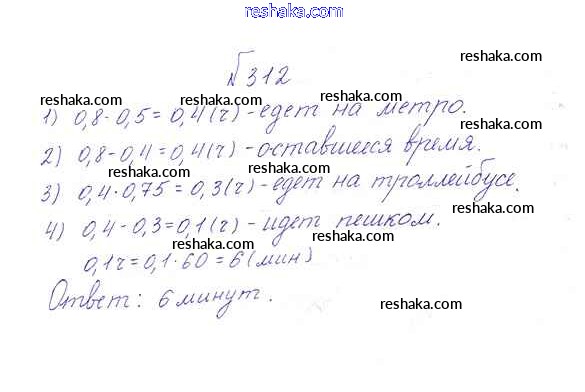 reshaka.com
№312
reshaka.com
reshaka.com
1) 0,8·0,5=0,4(ч)-едет на метро.
reshaka.com
reshaka.com
2) 0,8-0,4=0,4(ч)-оставшееся время.
reshaka.com
3) 0,4·0,75=0,3(ч)-едет на троллейбусе.
reshaka.com
reshaka.com
4) 0,4-0,3=0,1(ч)-идет пешком.
reshaka.com
0,1ч=0,1·60=6(мин)
reshaka.com
Ответ: 6 минут.
reshaka.com